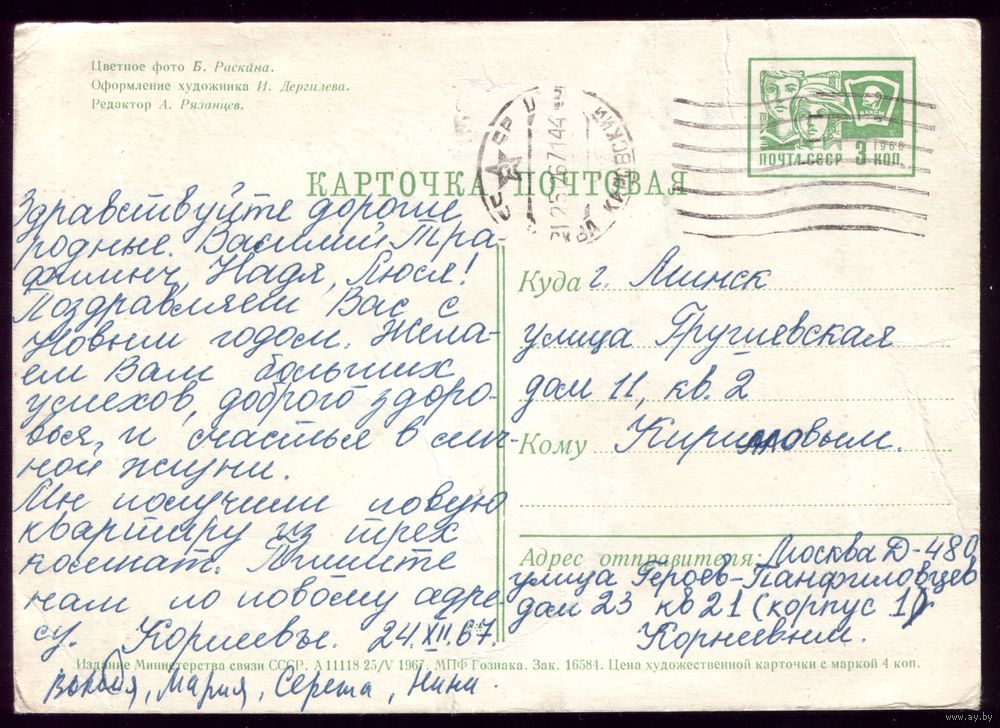 Цветное фото Б. Раскина.
Оформление художника И. Дергилева.
Редактор А. Рязанцев.
ВЛКСМ
1966
ПОЧТА СССР 3 КОП.
СССР
25 12 67 14
КИРОВСКИЙ
КАРТОЧКА ПОЧТОВАЯ
Здравствуйте дорогие
родные. Василий Тра-
филинч, Надя, Люся!
Поздравляем Вас с
Новым годом. Жела-
ем Вам больших
успехов, доброго здоро-
вья, и счастья в лич-
ной жизни.
Мы получили новую
квартиру из трех
комнат. Пишите
нам по новому адре-
су. Корнеевы. 24.XII.67.
Мария, Сережа, Нина.
Куда г. Минск
улица Грушевская
дом 11, кв. 2
Кому Кирилловым.
Адрес отправителя: Москва Д-480
улица Героев-Панфиловцев
дом 23 кв 21 (корпус 1)
Корнеевым.
Издание Министерства связи СССР. А 11118 25/V 1967. МПФ Гознака. Зак. 16584. Цена художественной карточки с маркой 4 коп.
www.ay.by